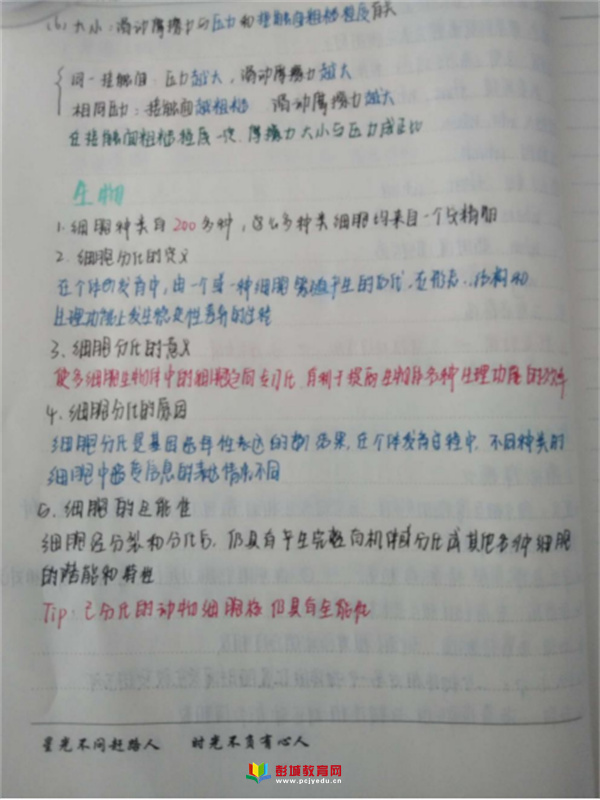 (6) 大小：滑动摩擦力与压力和接触面粗糙程度有关
同一接触面：压力越大，滑动摩擦力越大
相同压力：接触面越粗糙 滑动摩擦力越大
在接触面粗糙程度一定，摩擦力大小与压力成正比
生物
1. 细胞种类有200多种，这么多种类细胞均来自一个受精卵
2. 细胞分化的定义
在个体的发育中，由一个或一种细胞增殖产生的后代，在形态、结构和
生理功能上发生稳定性差异的过程
3. 细胞分化的意义
使多细胞生物体中的细胞趋向专门化，有利于提高生物体多种生理功能的效率
4. 细胞分化的原因
细胞分化是基因选择性表达的结果，在个体发育过程中，不同种类的
细胞中遗传信息的表达情况不同
5. 细胞的全能性
细胞经分裂和分化后，仍具有产生完整有机体或分化成其他各种细胞
的潜能和特性
Tip：已分化的动物细胞核仍具有全能性
星光不问赶路人 时光不负有心人
彭城教育网
www.pcjyedu.cn